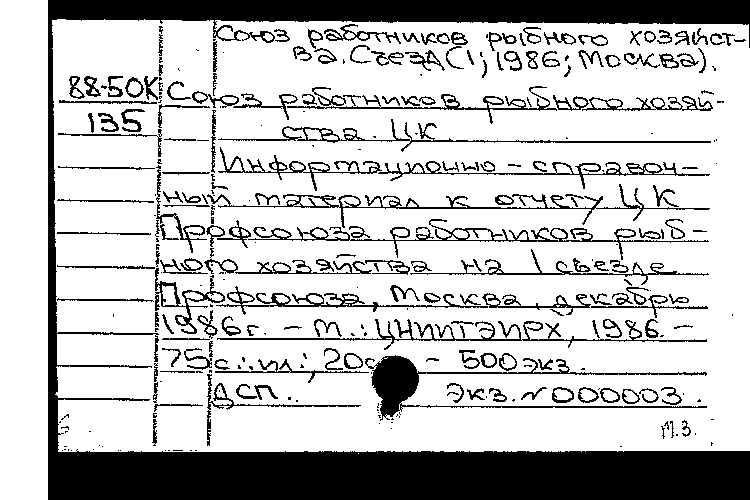 Союз работников рыбного хозяйст-
ва. Съезд (1; 1986; Москва).
88-50К Союз работников рыбного хозяй-
135 ства. ЦК.
Информационно-справоч-
ный материал к отчету ЦК
Профсоюза работников рыб-
ного хозяйства на I съезде
Профсоюза, Москва, декабрь
1986г. - М.: ЦНИИТЭИРХ, 1986. -
75 с.: ил.; 20 - 500 экз.
ДСП. Экз. N 000003.
М.З.